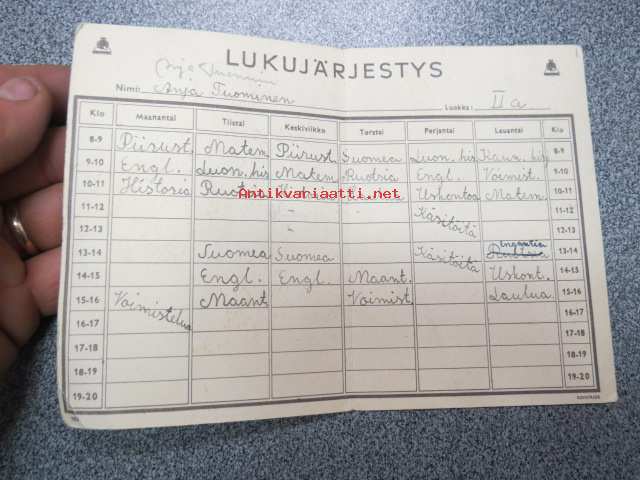 LUKUJÄRJESTYS
Arja Tuominen
Nimi: Arja Tuominen Luokka: II a.
Klo Maanantai Tiistai Keskiviikko Torstai Perjantai Lauantai Klo
8-9 Piirust. Matem. Piirust. Suomea Luon. his. Kaun. kir. 8-9
9-10 Engl. Luon. his. Matem. Ruotsia Engl. Voimist. 9-10
10-11 Historia Ruotsia Uskontoa Matem. 10-11
Antikvariaatti.net
11-12 - Käsitöitä 11-12
12-13 - 12-13
13-14 Suomea Suomea Käsitöitä Englantia 13-14
14-15 Engl. Engl. Maant. Uskont. 14-15
15-16 Voimistelua Maant. Voimist. Laulua. 15-16
16-17 16-17
17-18 17-18
18-19 18-19
19-20 19-20